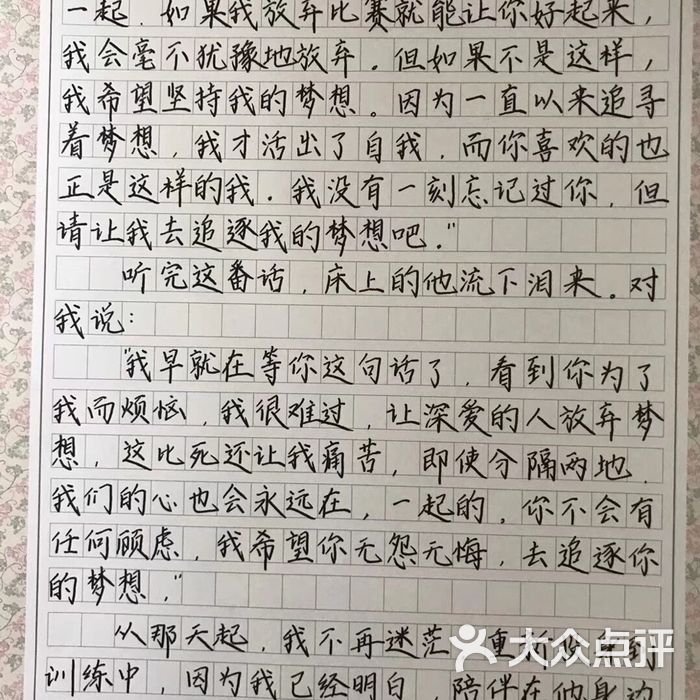 一起.如果我放弃比赛就能让你好起来,
我会毫不犹豫地放弃.但如果不是这样,
我希望坚持我的梦想。因为一直以来追寻
着梦想,我才活出了自我,而你喜欢的也
正是这样的我.我没有一刻忘记过你,但
请让我去追逐我的梦想吧."
听完这番话,床上的他流下泪来。对
我说:
"我早就在等你这句话了,看到你为了
我而烦恼,我很难过,让深爱的人放弃梦
想,这比死还让我痛苦,即使分隔两地.
我们的心也会永远在,一起的,你不会有
任何顾虑,我希望你无怨无悔,去追逐你
的梦想,"
从那天起,我不再迷茫,重
训练中,因为我已经明白,陪伴在他身边
大众点评